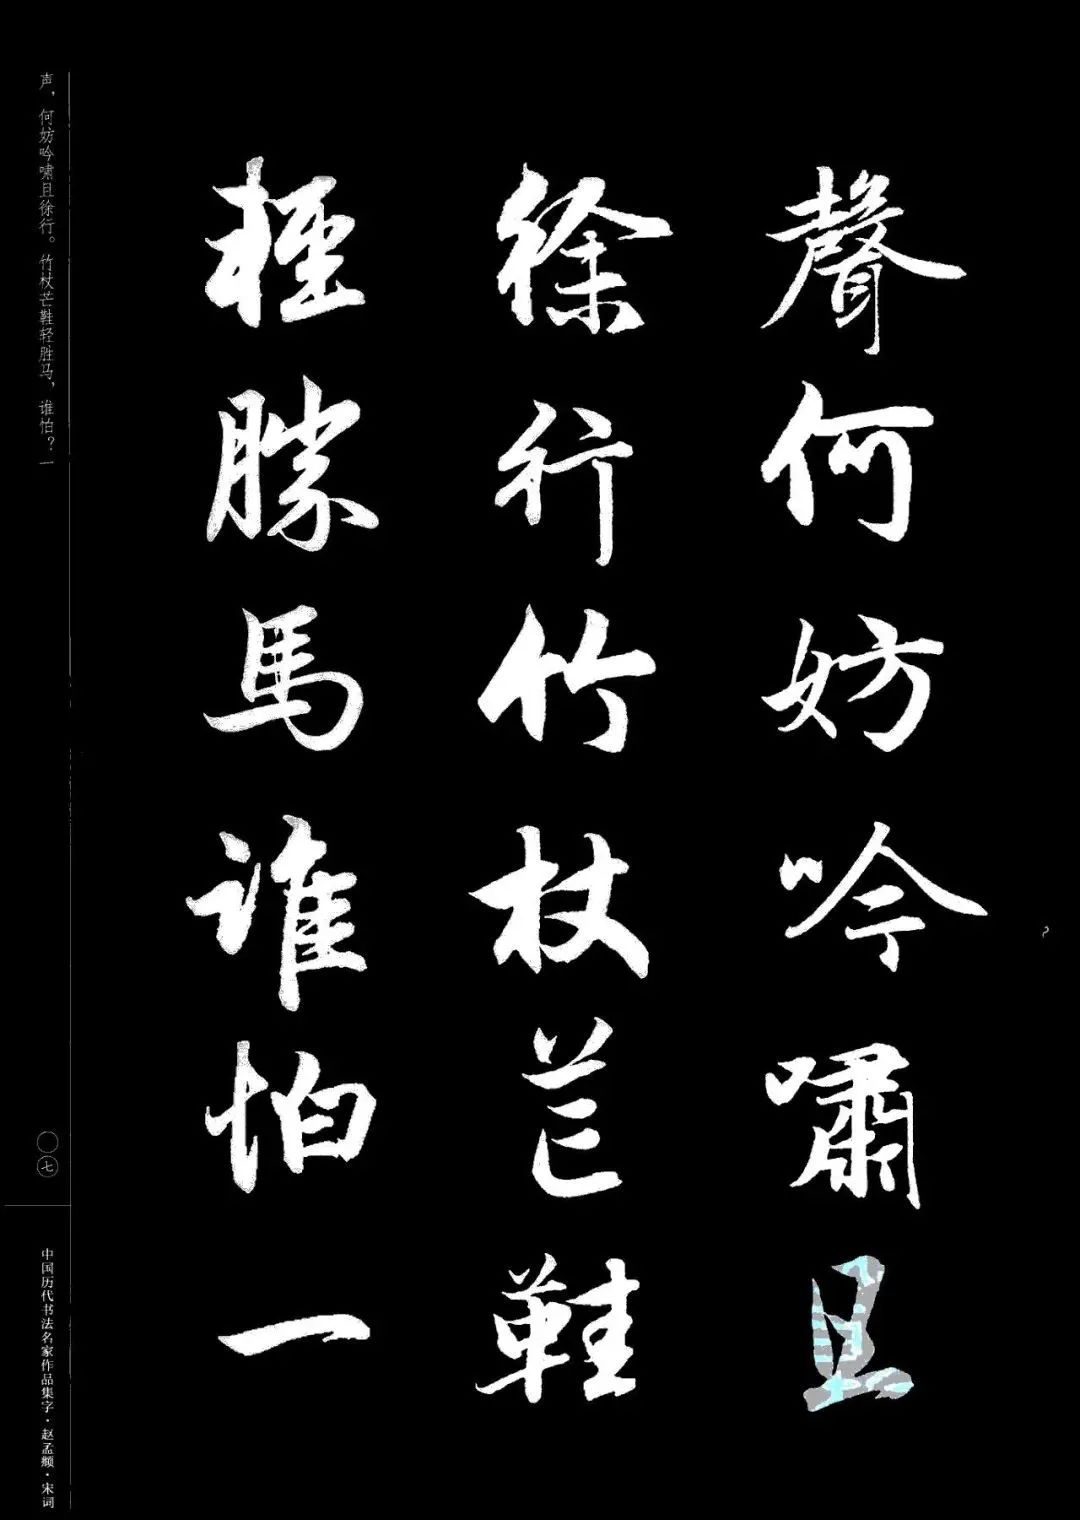 聲何妨吟嘯且
徐行竹杖芒鞋
輕勝馬誰怕一
声，何妨吟啸且徐行。竹杖芒鞋轻胜马，谁怕？一
〇七
中国历代书法名家作品集字·赵孟頫·宋词